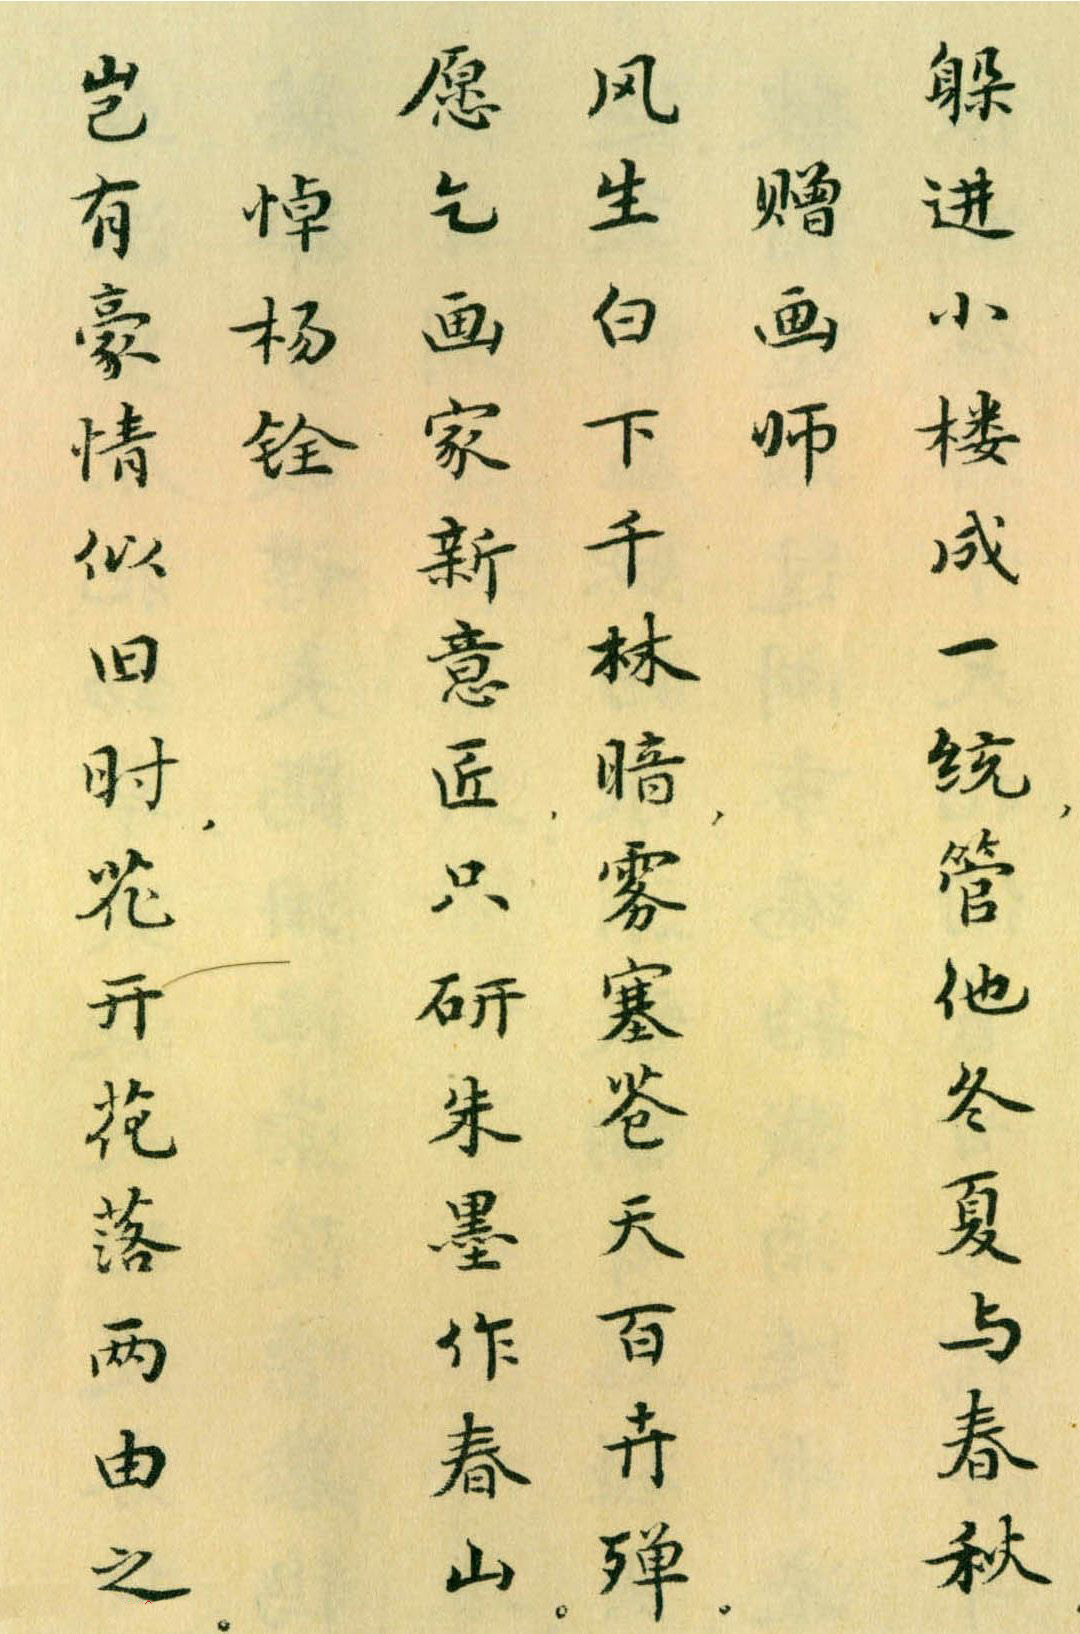 躲进小楼成一统，管他冬夏与春秋。
赠画师
风生白下千林暗，雾塞苍天百卉殚。
愿乞画家新意匠，只研朱墨作春山。
悼杨铨
岂有豪情似旧时，花开花落两由之。